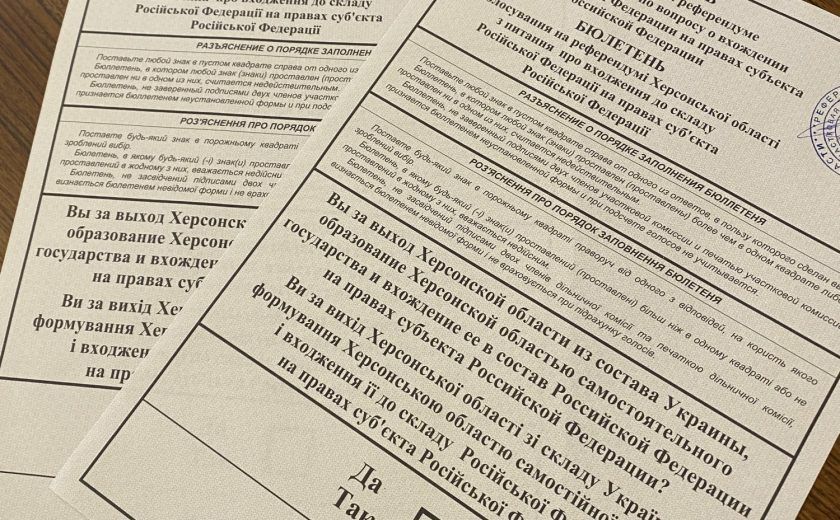 входження до складу
Російської Федерації на правах суб'єкта
Російської Федерації
РАЗЪЯСНЕНИЕ О ПОРЯДКЕ ЗАПОЛНЕН
Поставьте любой знак в пустом квадрате справа от одного из
Бюллетень, в котором любой знак (знаки) проставлен (прост
проставлен ни в одном из них, считается недействительным.
Бюллетень, не заверенный подписями двух членов участко
признается бюллетенем неустановленной формы и при подс
РОЗ'ЯСНЕННЯ ПРО ПОРЯДОК
Поставте будь-який знак в порожньому квадраті
зроблений вибір.
Бюлетень, в якому будь-який (-і) знак(и) простав
проставлений в жодному з них, вважається недійсн
Бюлетень, не засвідчений підписами двох
визнається бюлетенем невідомої форми і не врахов
Вы за выход Херсонск
образование Херсон
государства и вхожден
на правах суб
Ви за вихід Хе
формування Хер
і входжен
на пр
референдуме
по вопросу о вхождении
Федерации на правах субъекта
Российской Федерации
БЮЛЕТЕНЬ
голосування на референдумі Херсонської області
з питання про входження до складу
Російської Федерації на правах суб'єкта
Російської Федерації
РАЗЪЯСНЕНИЕ О ПОРЯДКЕ ЗАПОЛНЕНИЯ БЮЛЛЕТЕНЯ
Поставьте любой знак в пустом квадрате справа от одного из ответов, в пользу которого сделан
Бюллетень, в котором любой знак (знаки) проставлен (проставлены) более чем в одном квадрате либо
проставлен ни в одном из них, считается недействительным.
Бюллетень, не заверенный подписями двух членов участковой комиссии и печатью участковой комиссии
признается бюллетенем неустановленной формы и при подсчете голосов не учитывается.
РОЗ'ЯСНЕННЯ ПРО ПОРЯДОК ЗАПОВНЕННЯ БЮЛЕТЕНЯ
Поставте будь-який знак в порожньому квадраті праворуч від одного з відповідей, на користь якого
зроблений вибір.
Бюлетень, в якому будь-який (-і) знак(и) проставлений (проставлені) більш ніж в одному квадраті або не
проставлений в жодному з них, вважається недійсним.
Бюлетень, не засвідчений підписами двох членів дільничної комісії та печаткою дільничної комісії,
визнається бюлетенем невідомої форми і не враховується при підрахунку голосів.
Вы за выход Херсонской области из состава Украины,
образование Херсонской областью самостоятельного
государства и вхождение ее в состав Российской Федерации
на правах субъекта Российской Федерации?
Ви за вихід Херсонської області зі складу Украї
формування Херсонською областю самостійно
і входження її до складу Російської Ф
на правах суб'єкта Російської Ф
Да
Так